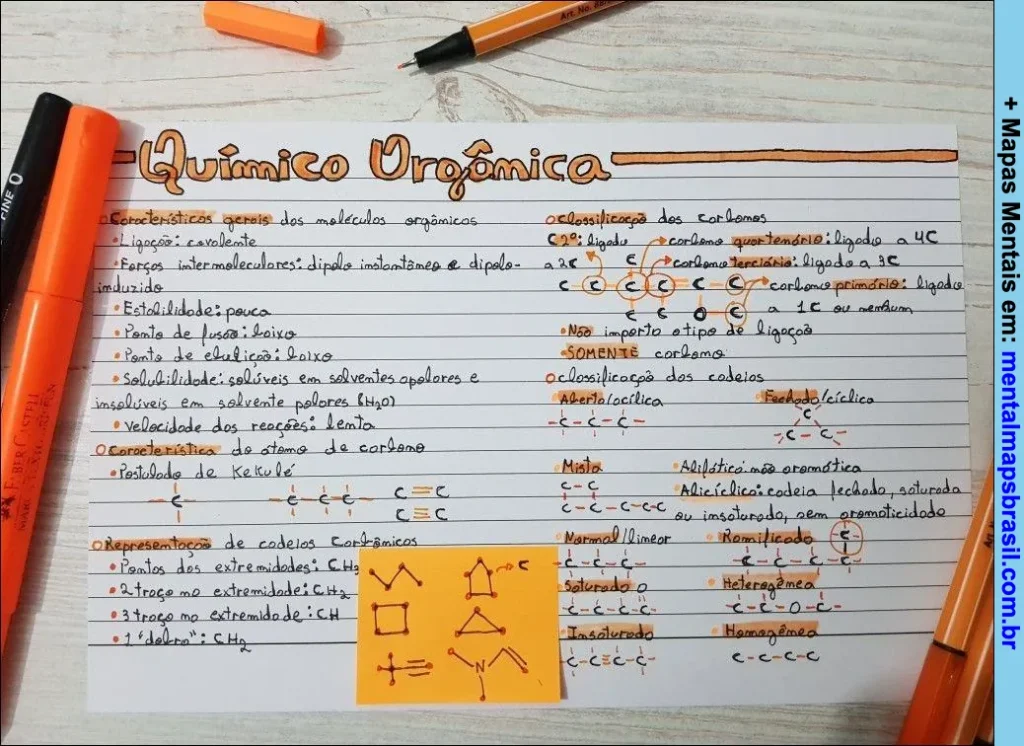 Química Orgânica
Características gerais das moléculas orgânicas
• Ligação: covalente
• Forças intermoleculares: dipolo instantâneo e dipolo-
induzido
• Estabilidade: pouca
• Ponto de fusão: baixo
• Ponto de ebulição: baixo
• Solubilidade: solúveis em solventes apolares e
insolúveis em solvente polares (H2O)
• Velocidade das reações: lenta
Característica do átomo de carbono
• Postulado de Kekulé
-C-
-C-C-C-
C=C
C≡C
Representação de cadeias Carbônicas
• Pontas das extremidades: CH3
• 2 traço na extremidade: CH2
• 3 traço na extremidade: CH
• 1 "dobra": CH2
C
N
Classificação dos carbonos
C 2º: ligado
a 2C
carbono quartenário: ligado a 4C
C
carbono terciário: ligado a 3C
C - C - C - C = C - C
carbono primário: ligado
a 1C ou nenhum
C C O C
• Não importa o tipo de ligação
• SOMENTE carbono
Classificação das cadeias
• Aberta/acílica
-C-C-C-
• Fechada/cíclica
C
C-C
• Mista
C-C
C-C-C-C-C
• Alifática: não aromática
• Alicíclica: cadeia fechada, saturada
ou insaturada, sem aromaticidade
• Normal/linear
-C-C-C-C-
• Ramificada
-C-
-C-C-C-C-
• Saturada O
-C-C-C-C
• Heterogênea
-C-C-O-C-
• Insaturada
-C-C≡C-C-
• Homogênea
C-C-C-C
FINE
FABER CASTELL
Art. No. 88/
+ Mapas Mentais em: mentalmapsbrasil.com.br